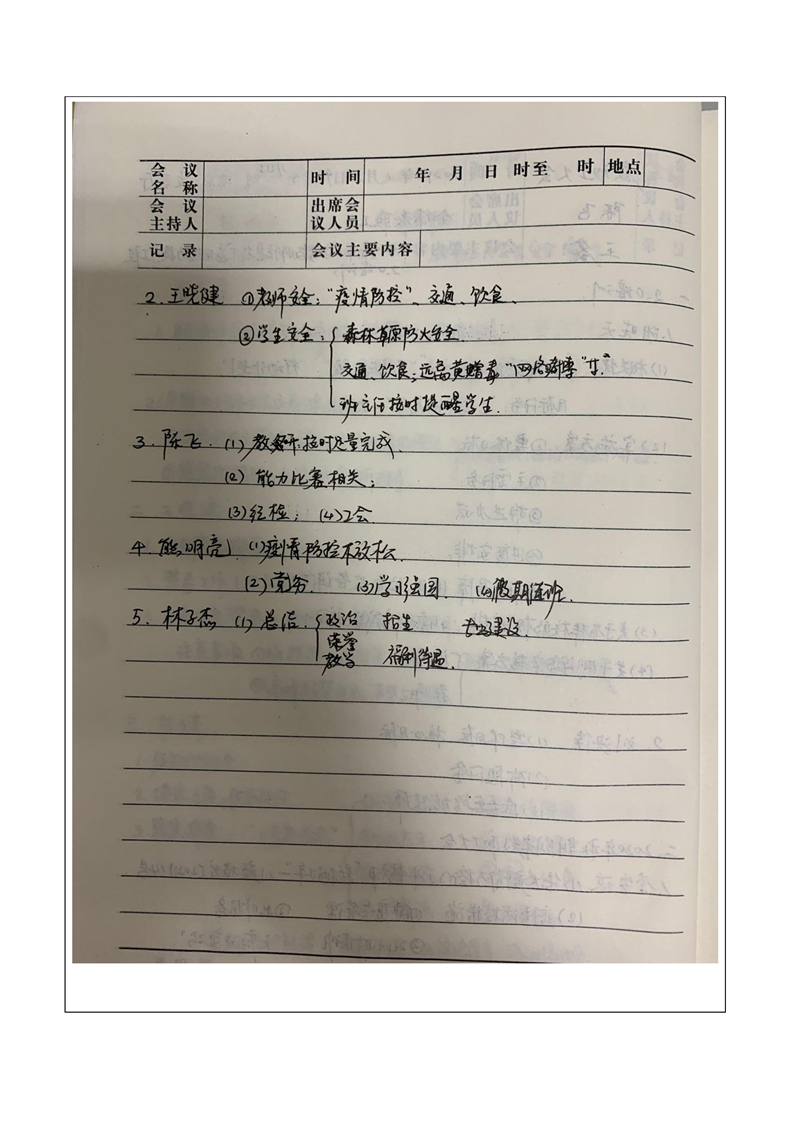 会议名称 时间 年 月 日 时至 时 地点
会议主持人 出席会议人员
记录 会议主要内容
2. 王晓健 ①老师安全:"疫情防控"、交通、饮食、
②学生安全: 森林草原防火安全
交通、饮食;远离黄赌毒"网络赌博"
班主任按时提醒学生.
3. 陈飞. (1) 教务研:按时尽量完成
(2) 能力比赛相关;
(3) 经检; (4) 工会
4. 熊明亮 (1) 疫情防控不放松
(2) 党务. (3) 学习强国. (4) 假期值班.
5. 林子杰 (1) 总结. 政治 招生 建设.
荣誉
教学 福利待遇.